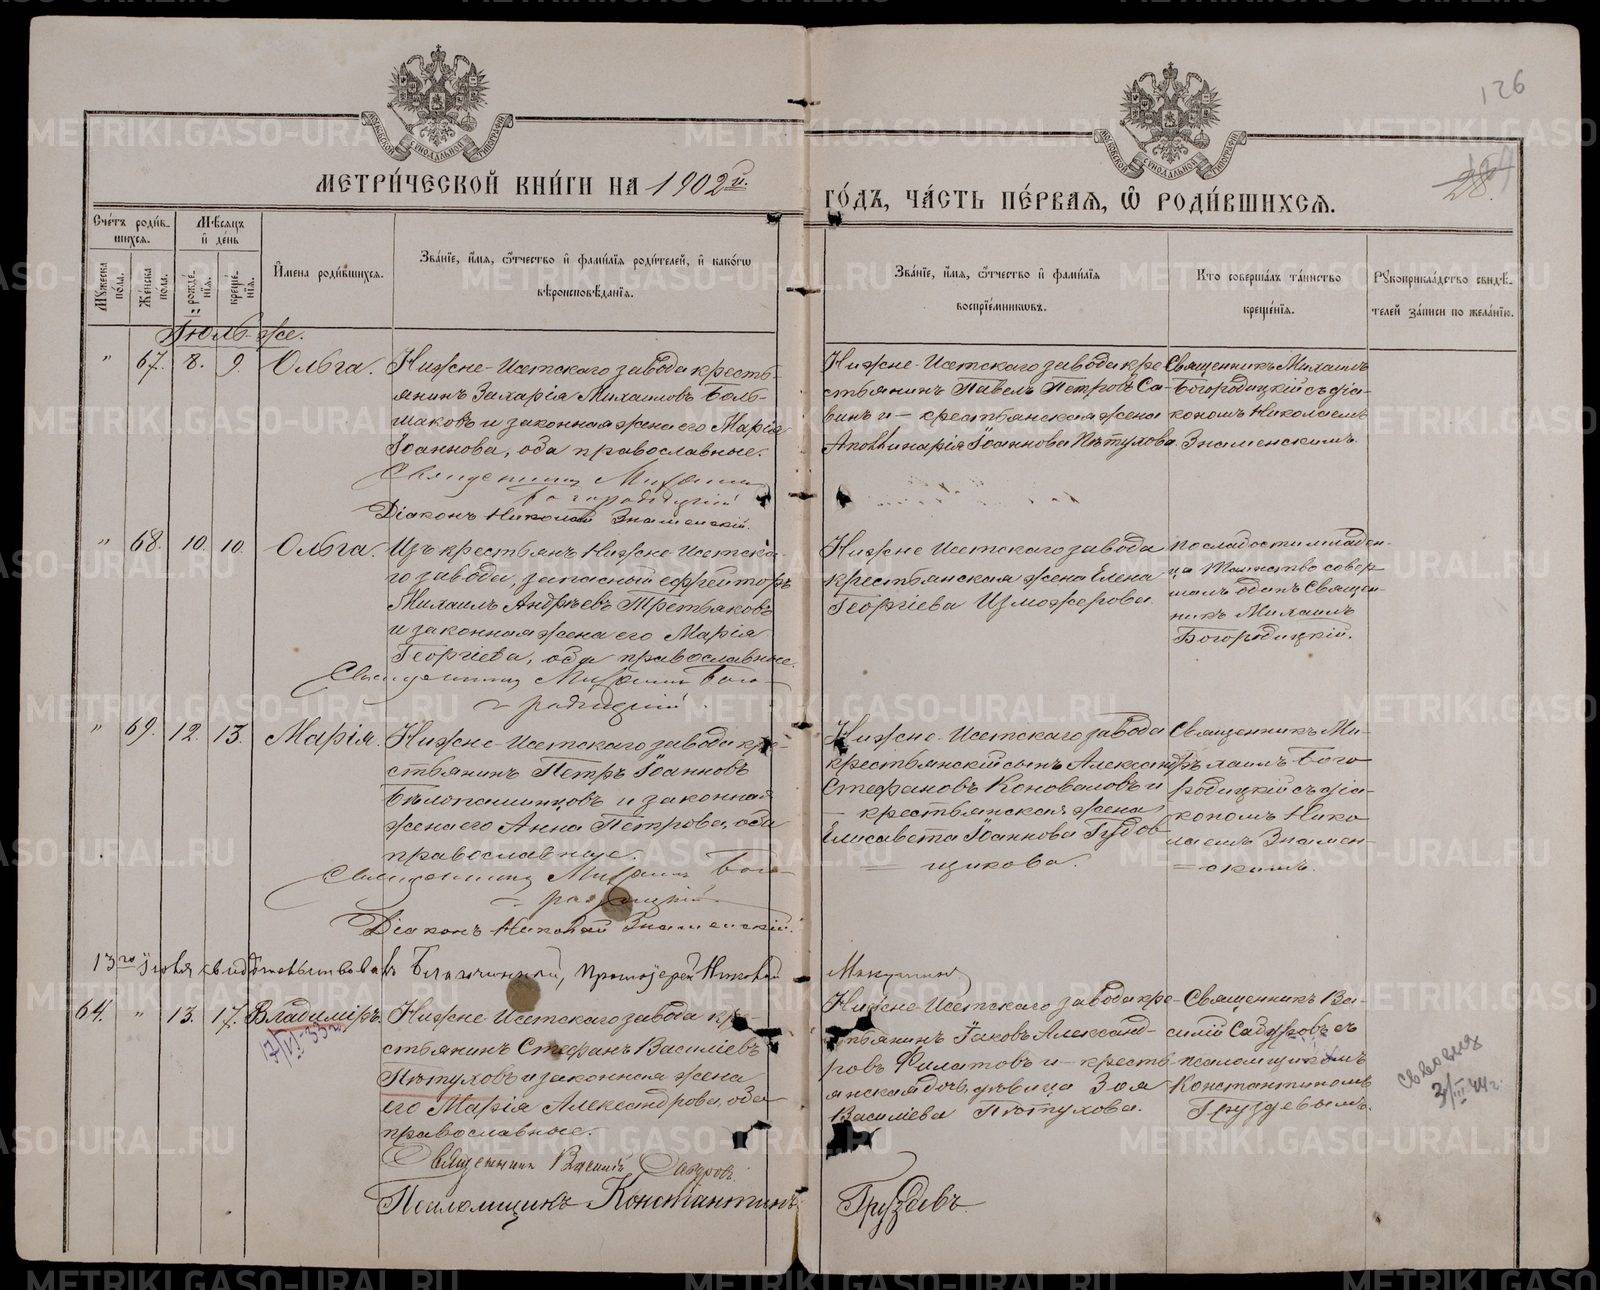 126
124
28.
МОСКОВСКОЙ СѴНОДАЛЬНОЙ ТИПОГРАФІИ
МОСКОВСКОЙ СѴНОДАЛЬНОЙ ТИПОГРАФІИ
МЕТРИ́ЧЕСКОЙ КНИ́ГИ НА 1902й.
ГО́ДЪ, ЧА́СТЬ ПЕ́РВАѦ, Ѡ҆ РОДИ́ВШИХСѦ.
Сче́тъ роди́в-
шихсѧ.
Мѣ́сѧцъ
и҆ де́нь
Мꙋ́жеска
по́ла.
Же́нска
по́ла.
рожде́-
нїѧ.
креще́-
нїѧ.
И҆мена̀ роди́вшихсѧ.
Зва́нїе, и҆́мѧ, ѻ҆́тчество и҆ фами́лїѧ роди́телей, и҆ како́гѡ
вѣроисповѣ́данїѧ.
Зва́нїе, и҆́мѧ, ѻ҆́тчество и҆ фами́лїѧ
воспрїе́мникѡвъ.
Кто̀ соверша́лъ та́инство
креще́нїѧ.
Рꙋкоприкла́дство свидѣ́-
телей за́писи по жела́нїю.
Іюль-же.
" 67. 8. 9. Ольга.
Нижне-Исетскаго завода кресть-
янинъ Захарія Михаиловъ Боль-
шаковъ и законная жена его Марія
Іоаннова, оба православные.
Священникъ Михаилъ
Богородицкій
Діаконъ Николай Знаменскій.
Нижне-Исетскаго завода кре-
стьянинъ Павелъ Петровъ Са-
винъ и – крестьянская жена
Аполлинарія Іоаннова Пѣтухова.
Священникъ Михаилъ
Богородицкій съ діа-
кономъ Николаемъ
Знаменскимъ.
" 68. 10. 10. Ольга.
Изъ крестьянъ Нижне-Исетска-
го завода, запасный ефрейторъ
Михаилъ Андреевъ Третьяковъ
и законная жена его Марія
Георгіева, оба православные.
Священникъ Михаилъ Бого-
родицкій.
Нижне-Исетскаго завода
крестьянская жена Елена
Георгіева Изможерова.
По слабости младен-
ца Таинство совер-
шалъ одинъ Священ-
никъ Михаилъ
Богородицкій.
" 69. 12. 13. Марія.
Нижне-Исетскаго завода кре-
стьянинъ Петръ Іоанновъ
Бѣлопашинцовъ и законная
жена его Анна Петрова, оба
православные.
Священникъ Михаилъ Бого-
родицкій
Діаконъ Николай Знаменскій.
Нижне-Исетскаго завода
крестьянскій сынъ Александръ
Стефановъ Коноваловъ и
– крестьянская жена
Елисавета Іоаннова Губов-
щикова.
Священникъ Ми-
хаилъ Бого-
родицкій съ діа-
кономъ Нико-
лаемъ Знамен-
скимъ.
13го Іюля свидѣтельствовалъ Благочинный, Протоіерей Николай
64. " 13. 17. Владиміръ.
17/VI-33г.
Нижне-Исетскаго завода кре-
стьянинъ Стефанъ Василіевъ
Пѣтуховъ и законная жена
его Марія Александрова, оба
православные.
Священникъ Василій Садуровъ.
Псаломщикъ Константинъ
Груздевъ.
Нижне-Исетскаго завода кре-
стьянинъ Іаковъ Александ-
ровъ Филатовъ и – кресть-
янская дочь, дѣвица Зоя
Василіева Пѣтухова.
Священникъ Ва-
силій Садуровъ съ
псаломщикомъ
Константиномъ
Груздевымъ.
3/III 44г.
METRIKI.GASO-URAL.RU